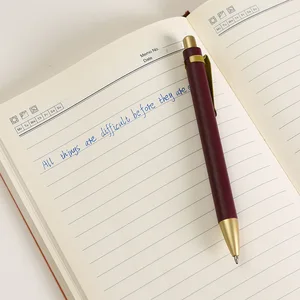 Memo No.
Date
All things are difficult before they are